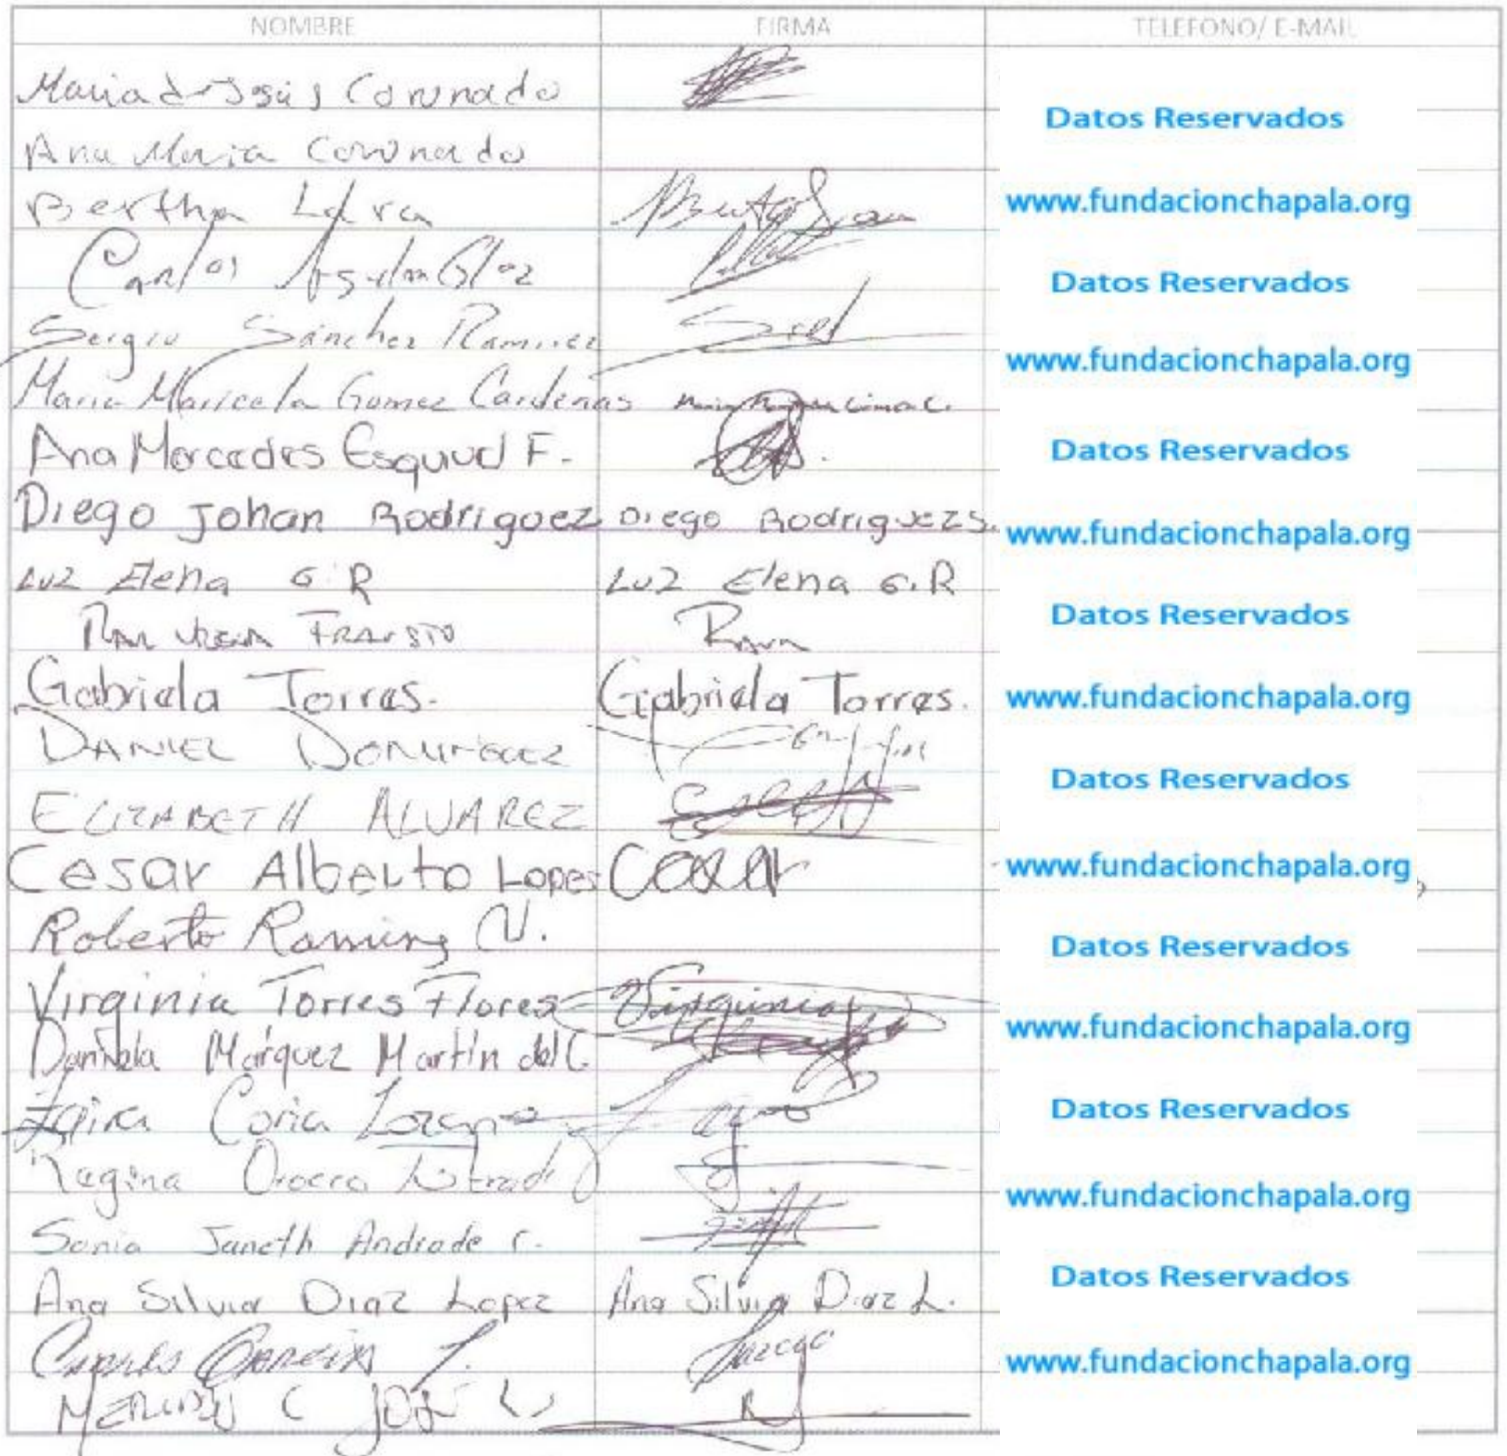 NOMBRE FIRMA TELEFONO/ E-MAIL
Maria de Jesús Coronado
Datos Reservados
Ana Maria Coronado
Bertha Lara
www.fundacionchapala.org
Carlos
Datos Reservados
Sergio Sánchez Ramirez
www.fundacionchapala.org
Maria Maricela Gomez Cardenas
Ana Mercedes Esquivel F.
Datos Reservados
Diego Johan Rodriguez Diego Rodriguez S.
www.fundacionchapala.org
Luz Elena G.R Luz Elena G.R
Datos Reservados
Gabriela Torres. Gabriela Torres.
www.fundacionchapala.org
DANIEL DOMINGUEZ
Datos Reservados
ELIZABETH ALVAREZ
Cesar Alberto Lopes Cesar
www.fundacionchapala.org
Roberto Ramirez N.
Datos Reservados
Virginia Torres Flores Virginia
www.fundacionchapala.org
Daniela Márquez Martín del C.
Zaira Coria Lozano
Datos Reservados
Regina Orocco
www.fundacionchapala.org
Sonia Janeth Andrade C.
Datos Reservados
Ana Silvia Diaz Lopez Ana Silvia Diaz L.
Carlos Garcia
www.fundacionchapala.org